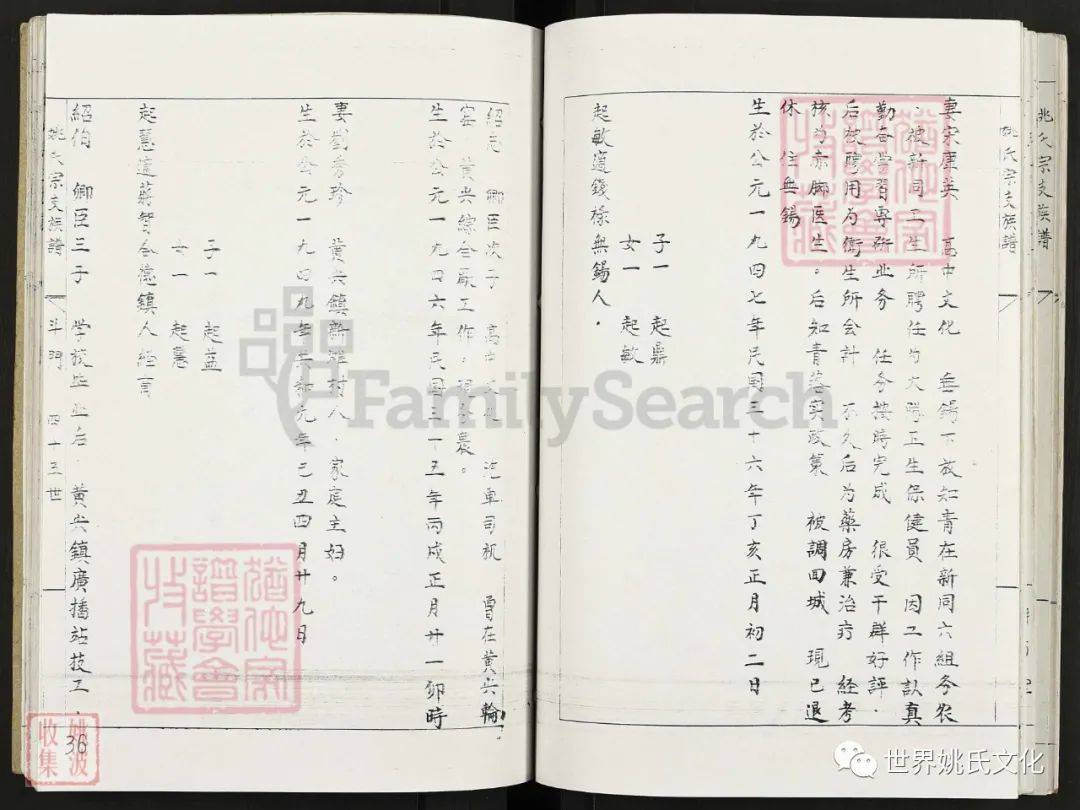 姚氏宗支族譜
姚氏宗支族譜
妻宋庫英 高中文化 無錫下放知青在新同六組务农
．被新同卫生所聘任为大隊卫生保健員 因工作认真
勤奋学習專術业务 任务按時完成 很受干群好評．
后被聘用为衛生所会計 不久后为藥房兼治疗 経考
核为赤脚医生。后知青落实政策 被調回城 現已退
休 住無錫
生於公元一九四七年民国三十六年丁亥正月初二日
子一 起鼎
女一 起敏
起敏適錢樣無錫人．
紹志 卿臣次子 高中文化 汽車司机 曾在黄尖輪
窑．黄尖綜合廠工作。
生於公元一九四六年民国三十五年丙戌正月廿一卯時
妻戴秀珍 黄尖鎮新洋村人．家庭主妇。
生於公元一九四九年共和元年己丑四月廿九日
子一 起益
女一 起慧
起慧適蔣智全德鎮人経商
紹伯 卿臣三子 学校毕业后．黄尖鎮廣播站技工．
姚氏宗支族譜 斗門 四十三世
36
姚波
收集
FamilySearch
世界姚氏文化